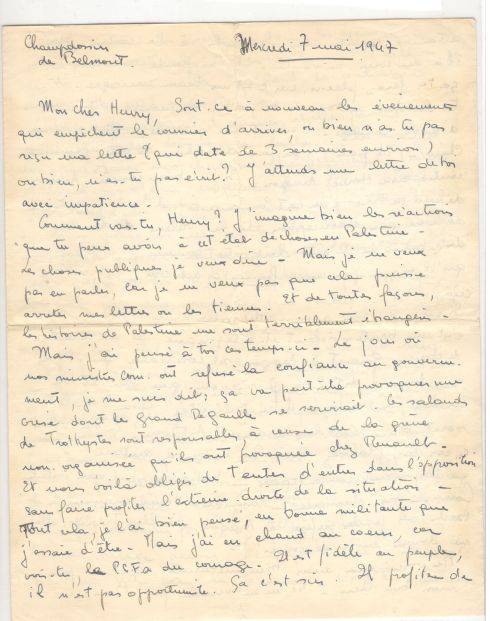 Champdossin
de Belmont.
Mercredi 7 mai 1947
Mon cher Henry, Sont-ce à nouveau les évènements
qui empêchent le courrier d'arriver, ou bien n'as-tu pas
reçu ma lettre (qui date de 3 semaines environ)
ou bien, n'as-tu pas écrit? J'attends une lettre de toi
avec impatience.
Comment vas-tu, Henry? J'imagine bien les réactions
que tu peux avoir à cet état de choses en Palestine -
Les choses publiques je veux dire - Mais je ne veux
pas en parler, car je ne veux pas que cela puisse
arrêter mes lettres ou les tiennes. Et de toutes façons,
les histoires de Palestine me sont terriblement étrangères -
Mais j'ai pensé à toi ces temps-ci - Le jour où
nos ministres com. ont refusé la confiance au gouverne-
ment, je me suis dit; ça va peut-être provoquer une
crise dont le Grand De Gaulle se servirait. Ces salauds
de Trotskystes sont responsables, à cause de la grève
non organisée qu'ils ont provoquée chez Renault -
Et nous voilà obligés de tenter d'entrer dans l'opposition
sans faire profiter l'extrême-droite de la situation -
Tout cela je l'ai bien pensé, en bonne militante que
j'essaie d'être - Mais j'ai eu chaud au coeur, car
vois-tu, le PCF a du courage. Il est fidèle au peuple,
il n'est pas opportuniste. Ça c'est sûr. Il profitera de